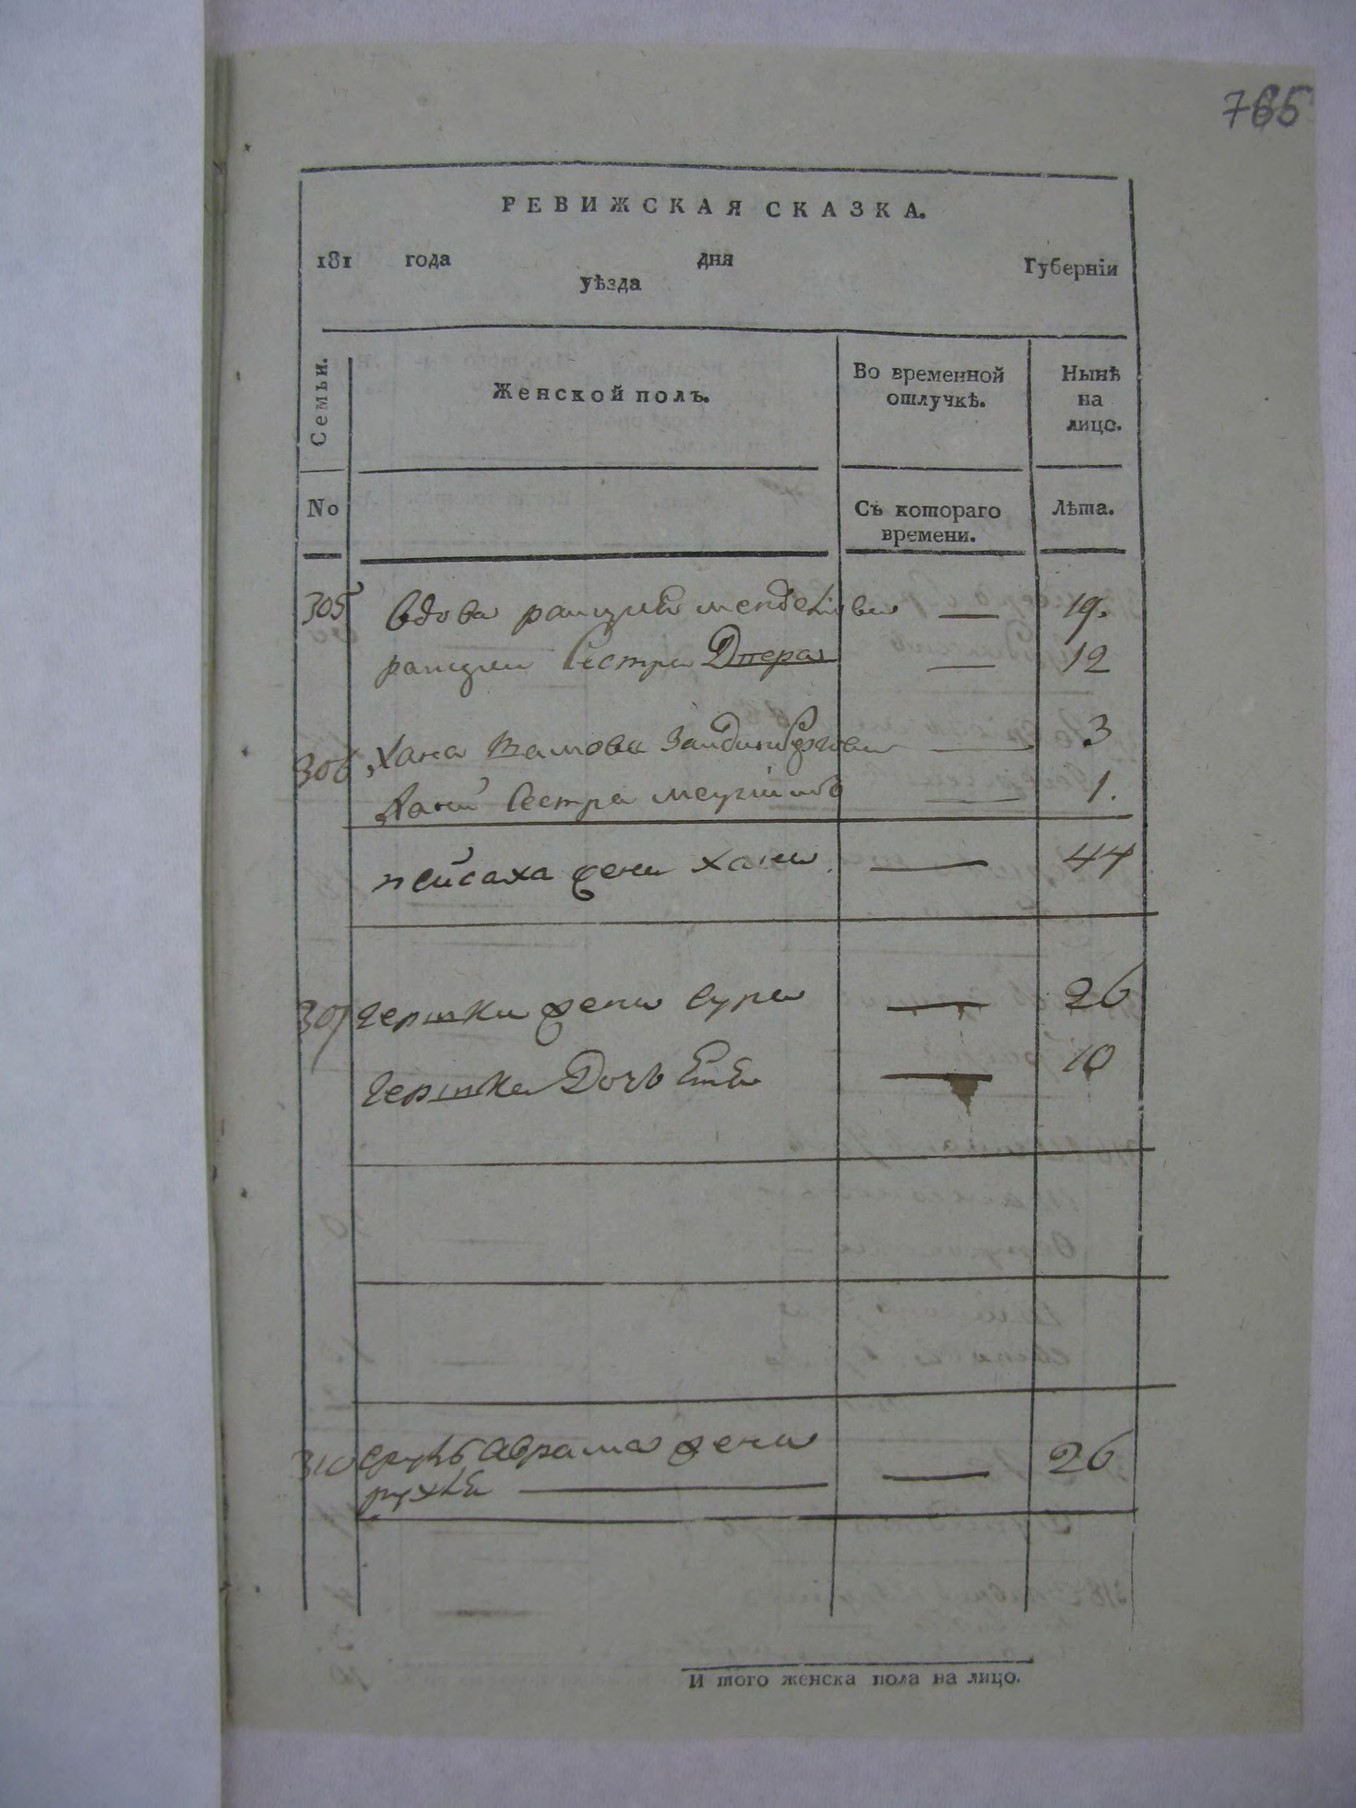 765
РЕВИЖСКАЯ СКАЗКА.
181 года дня Губерніи
уѣзда
Семьи.
Женской полъ.
Во временной отлучкѣ.
Нынѣ на лицо.
No
Съ котораго времени.
Лѣта.
305 вдова — 19.
Сестра Двера — 12
306 Хана — 3
Хани Сестра — 1.
пейсаха жена Хана — 44
307 Гершки жена Сура — 26
Гершка Дочь — 10
310 Сруль Абрама жена
— 26
И того женска пола на лицо.